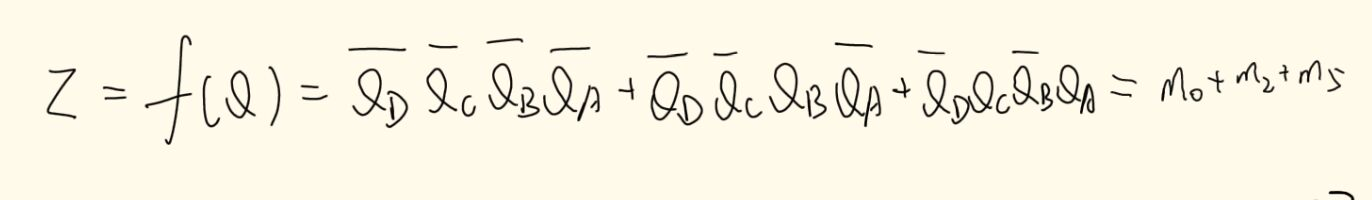 Z = f(Q) = Q̅_D Q̅_C Q̅_B Q̅_A + Q̅_D Q̅_C Q_B Q̅_A + Q̅_D Q_C Q̅_B Q_A = m₀ + m₂ + m₅